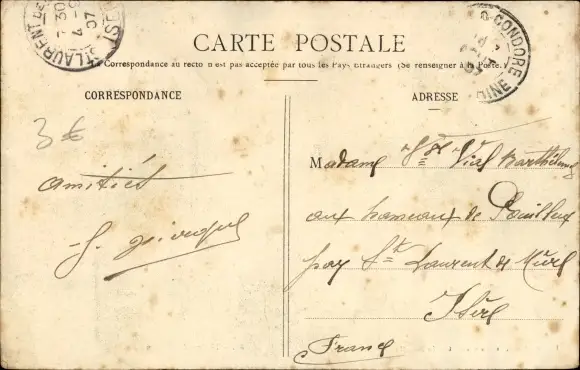 ST LAURENT DE
7 30
4 - 9
07
CARTE POSTALE
La Correspondance au recto n'est pas acceptée par tous les Pays Etrangers (Se renseigner à la Poste.)
CORRESPONDANCE
ADRESSE
CONDORE
3 €
Amitiés
Madame Vve Vial Barthélemy
aux hameaux de
par St Laurent de Mûre
Isère
France